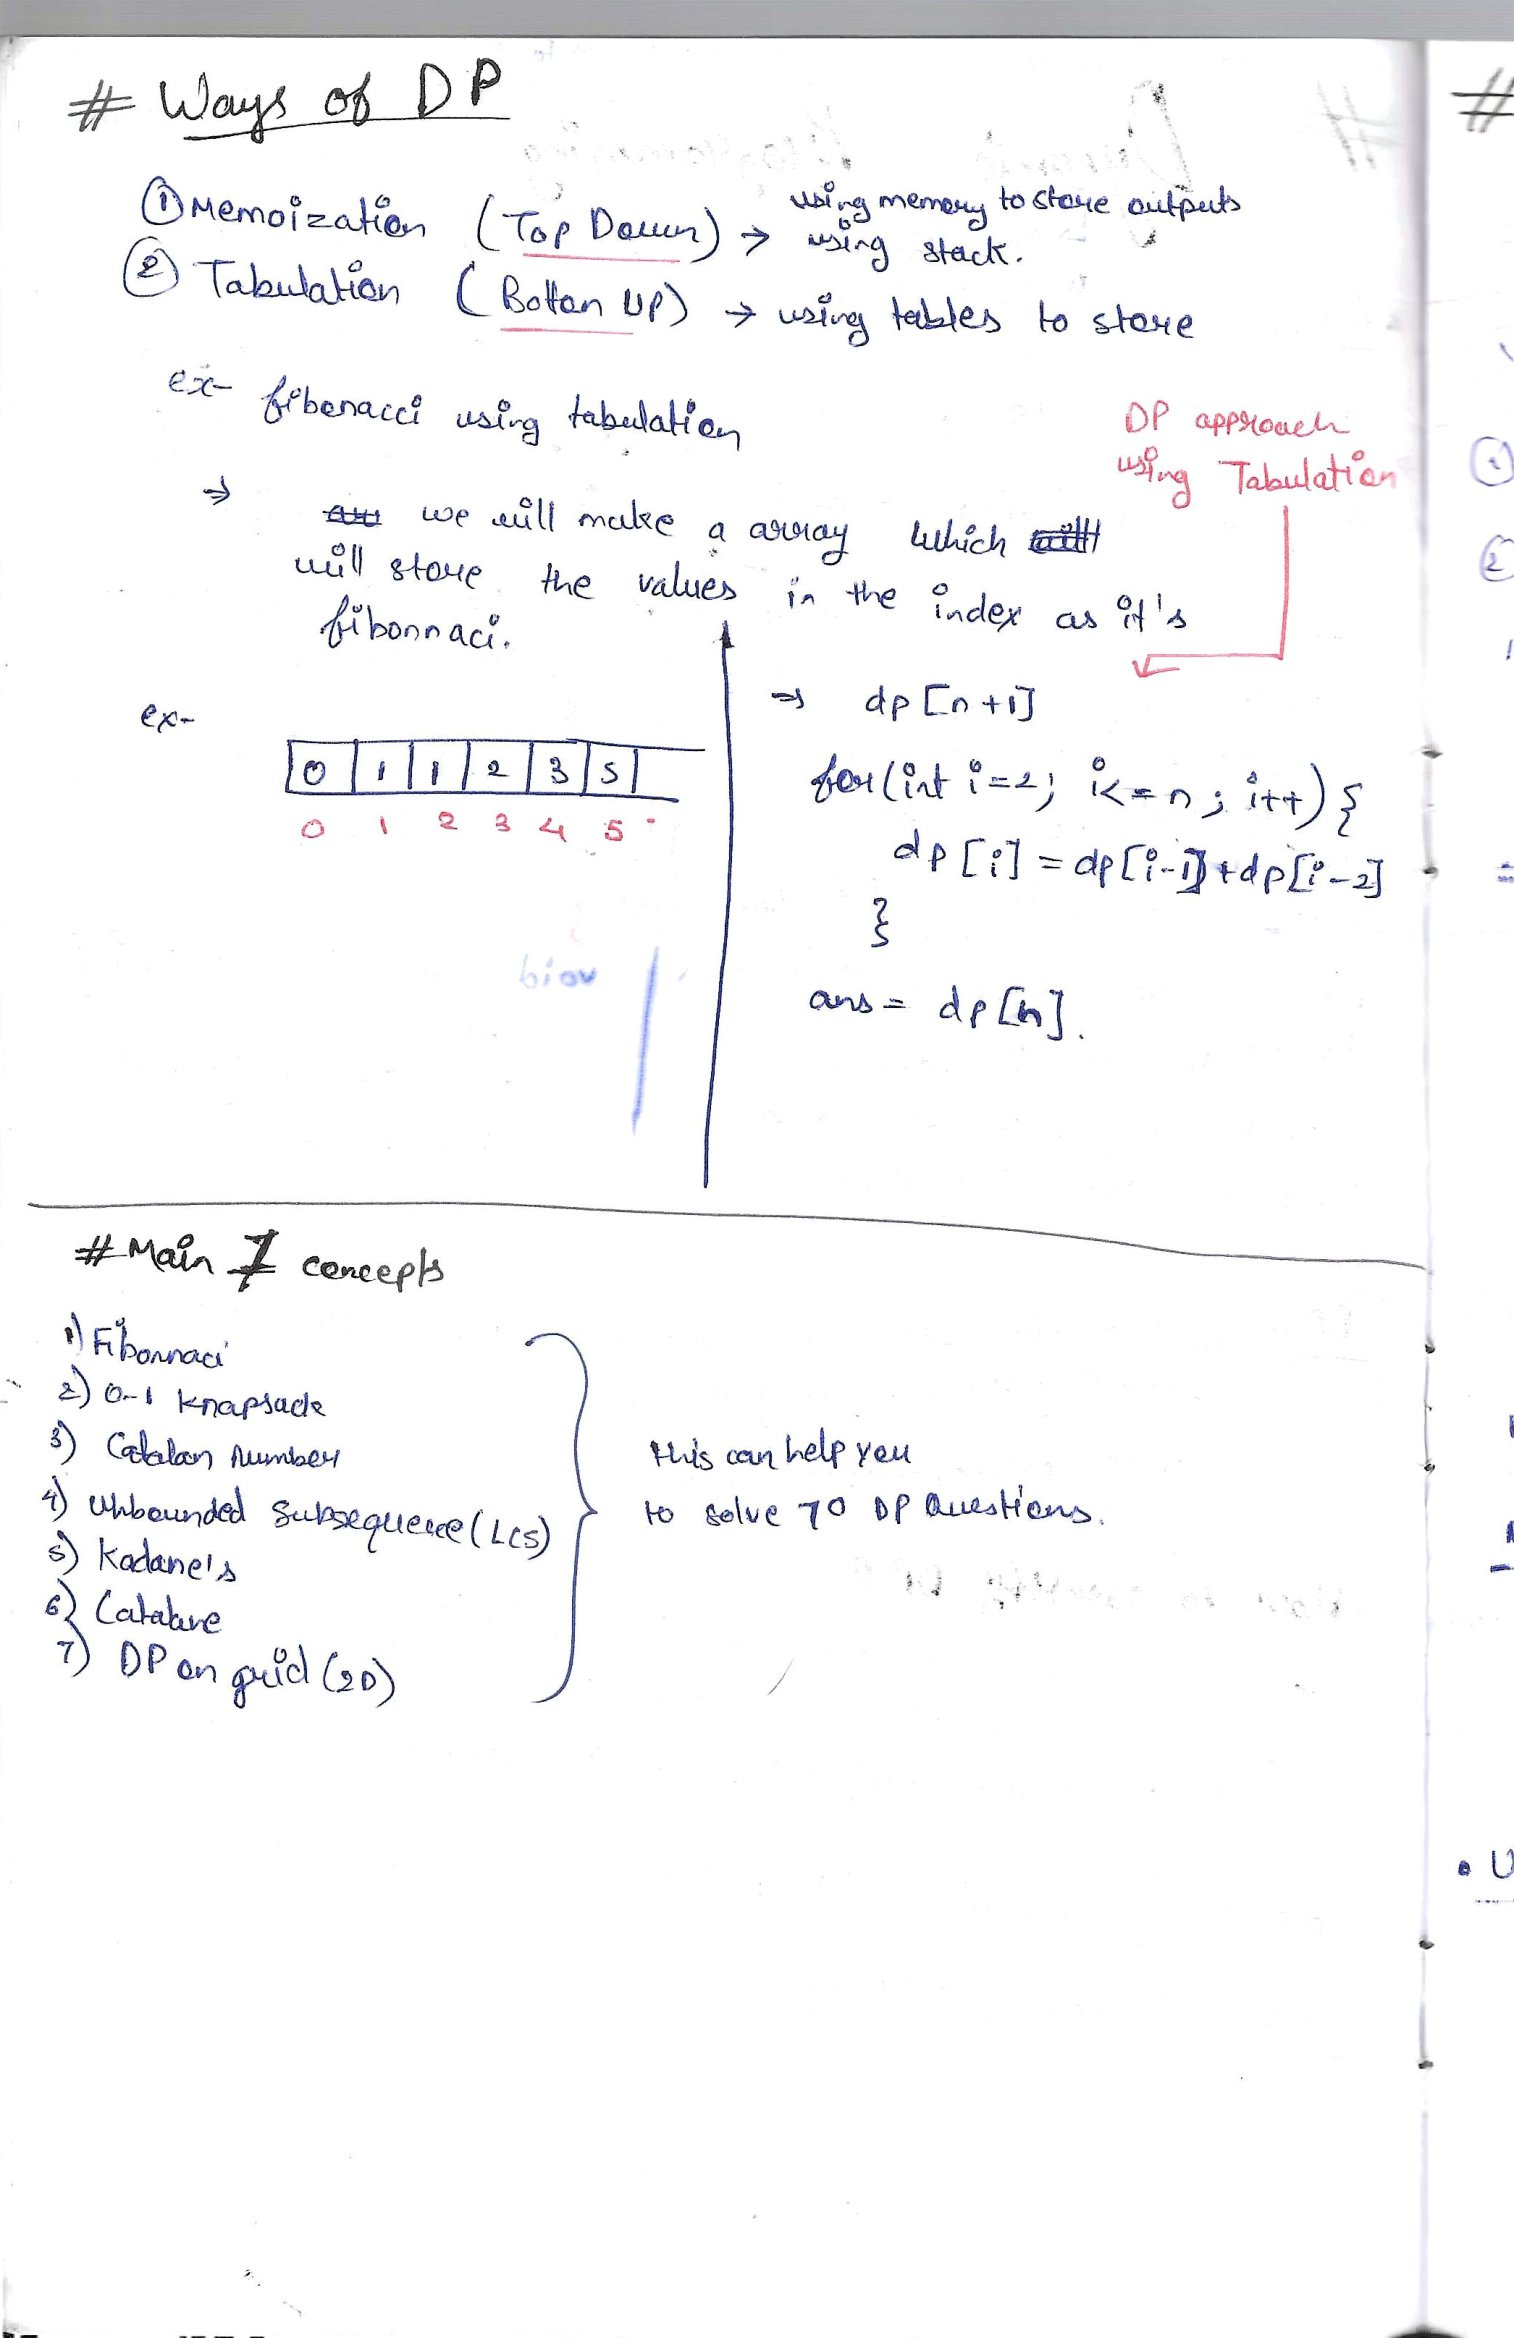 # Ways of DP
① Memoization (Top Down) → using memory to store outputs
using stack.
② Tabulation (Bottom UP) → using tables to store
ex- fibonacci using tabulation
DP approach
using Tabulation
⇒ we will make a array which
will store the values in the index as it's
fibonnaci.
ex-
0 1 1 2 3 5
0 1 2 3 4 5
⇒ dp[n+1]
for(int i=2; i<=n; i++){
dp[i] = dp[i-1]+dp[i-2]
}
ans = dp[n].
# Main 7 concepts
1) Fibonnaci
2) 0-1 Knapsack
3) Catalan number
4) Unbounded Subsequence (LCS)
5) Kadane's
6)
7) DP on grid (2D)
this can help you
to solve 70 DP Questions.